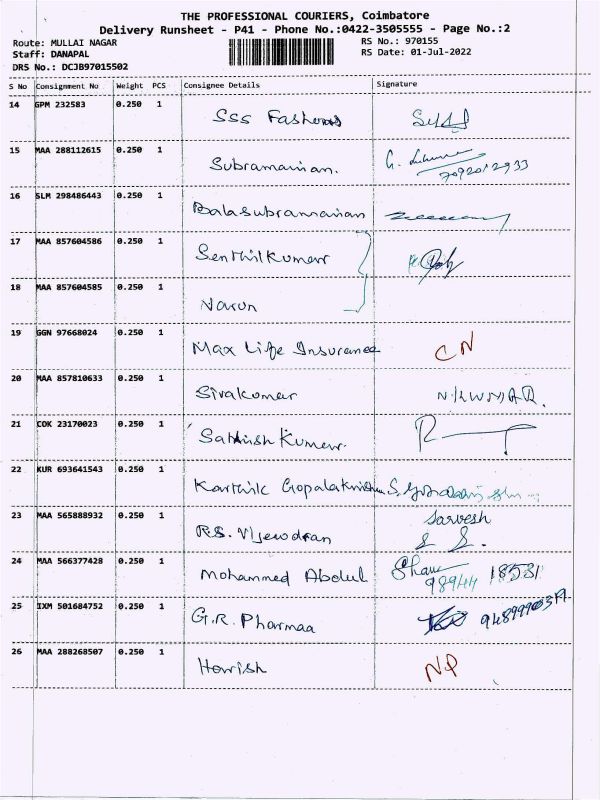 THE PROFESSIONAL COURIERS, Coimbatore
Delivery Runsheet - P41 - Phone No.:0422-3505555 - Page No.:2
Route: MULLAI NAGAR
Staff: DANAPAL
DRS No.: DCJB97015502
RS No.: 970155
RS Date: 01-Jul-2022
S No Consignment No Weight PCS Consignee Details Signature
14 GPM 232583 0.250 1 SSS Fashions
15 MAA 288112615 0.250 1 Subramanian. G. 7092012933
16 SLM 298486443 0.250 1 Balasubramanian
17 MAA 857604586 0.250 1 Senthilkumar
18 MAA 857604585 0.250 1 Varun
19 GGN 97668024 0.250 1 Max Life Insurance CN
20 MAA 857810633 0.250 1 Sivakumar N.KUMAR.
21 COK 23170023 0.250 1 Sathish Kumar.
22 KUR 693641543 0.250 1 Karthik Gopalakrishnan
23 MAA 565888932 0.250 1 R.S. Vijendran Sarvesh
24 MAA 566377428 0.250 1 Mohammed Abdul 98944 18531
25 IXM 501684752 0.250 1 G.R. Pharmaa
26 MAA 288268507 0.250 1 Harish NP